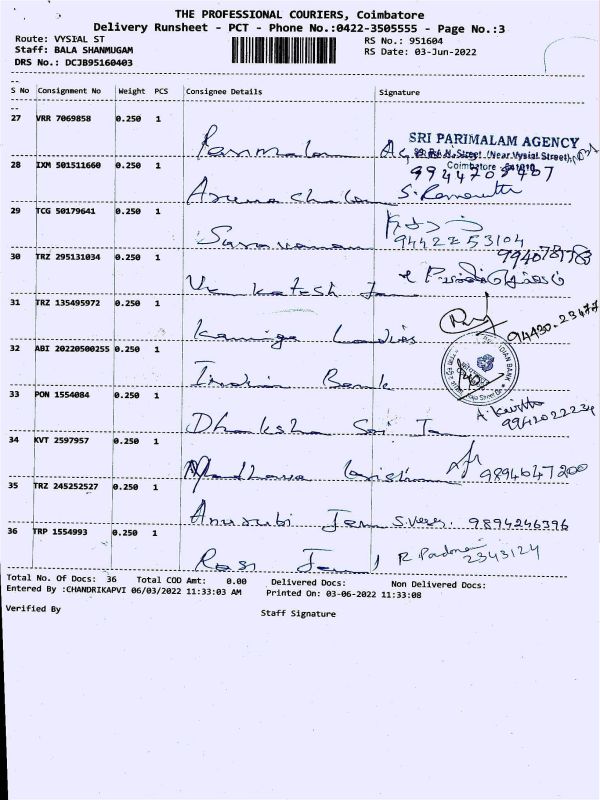 THE PROFESSIONAL COURIERS, Coimbatore
Delivery Runsheet - PCT - Phone No.:0422-3505555 - Page No.:3
Route: VYSIAL ST
RS No.: 951604
Staff: BALA SHANMUGAM
RS Date: 03-Jun-2022
DRS No.: DCJB95160403
S No Consignment No Weight PCS Consignee Details Signature
27 VRR 7069858 0.250 1
SRI PARIMALAM AGENCY
Coimbatore
28 IXM 501511660 0.250 1
29 TCG 50179641 0.250 1
Saravanan 9442253104
30 TRZ 295131034 0.250 1
Venkatesh
31 TRZ 135495972 0.250 1
94430-23477
Ladies
32 ABI 20220500255 0.250 1
Indian Bank
33 PON 1554084 0.250 1
Dhaksha Sai
34 KVT 2597957 0.250 1
9894647200
35 TRZ 245252527 0.250 1
9894246396
36 TRP 1554993 0.250 1
R. Padma 2343124
Total No. Of Docs: 36 Total COD Amt: 0.00 Delivered Docs: Non Delivered Docs:
Entered By :CHANDRIKAPVI 06/03/2022 11:33:03 AM Printed On: 03-06-2022 11:33:08
Verified By
Staff Signature